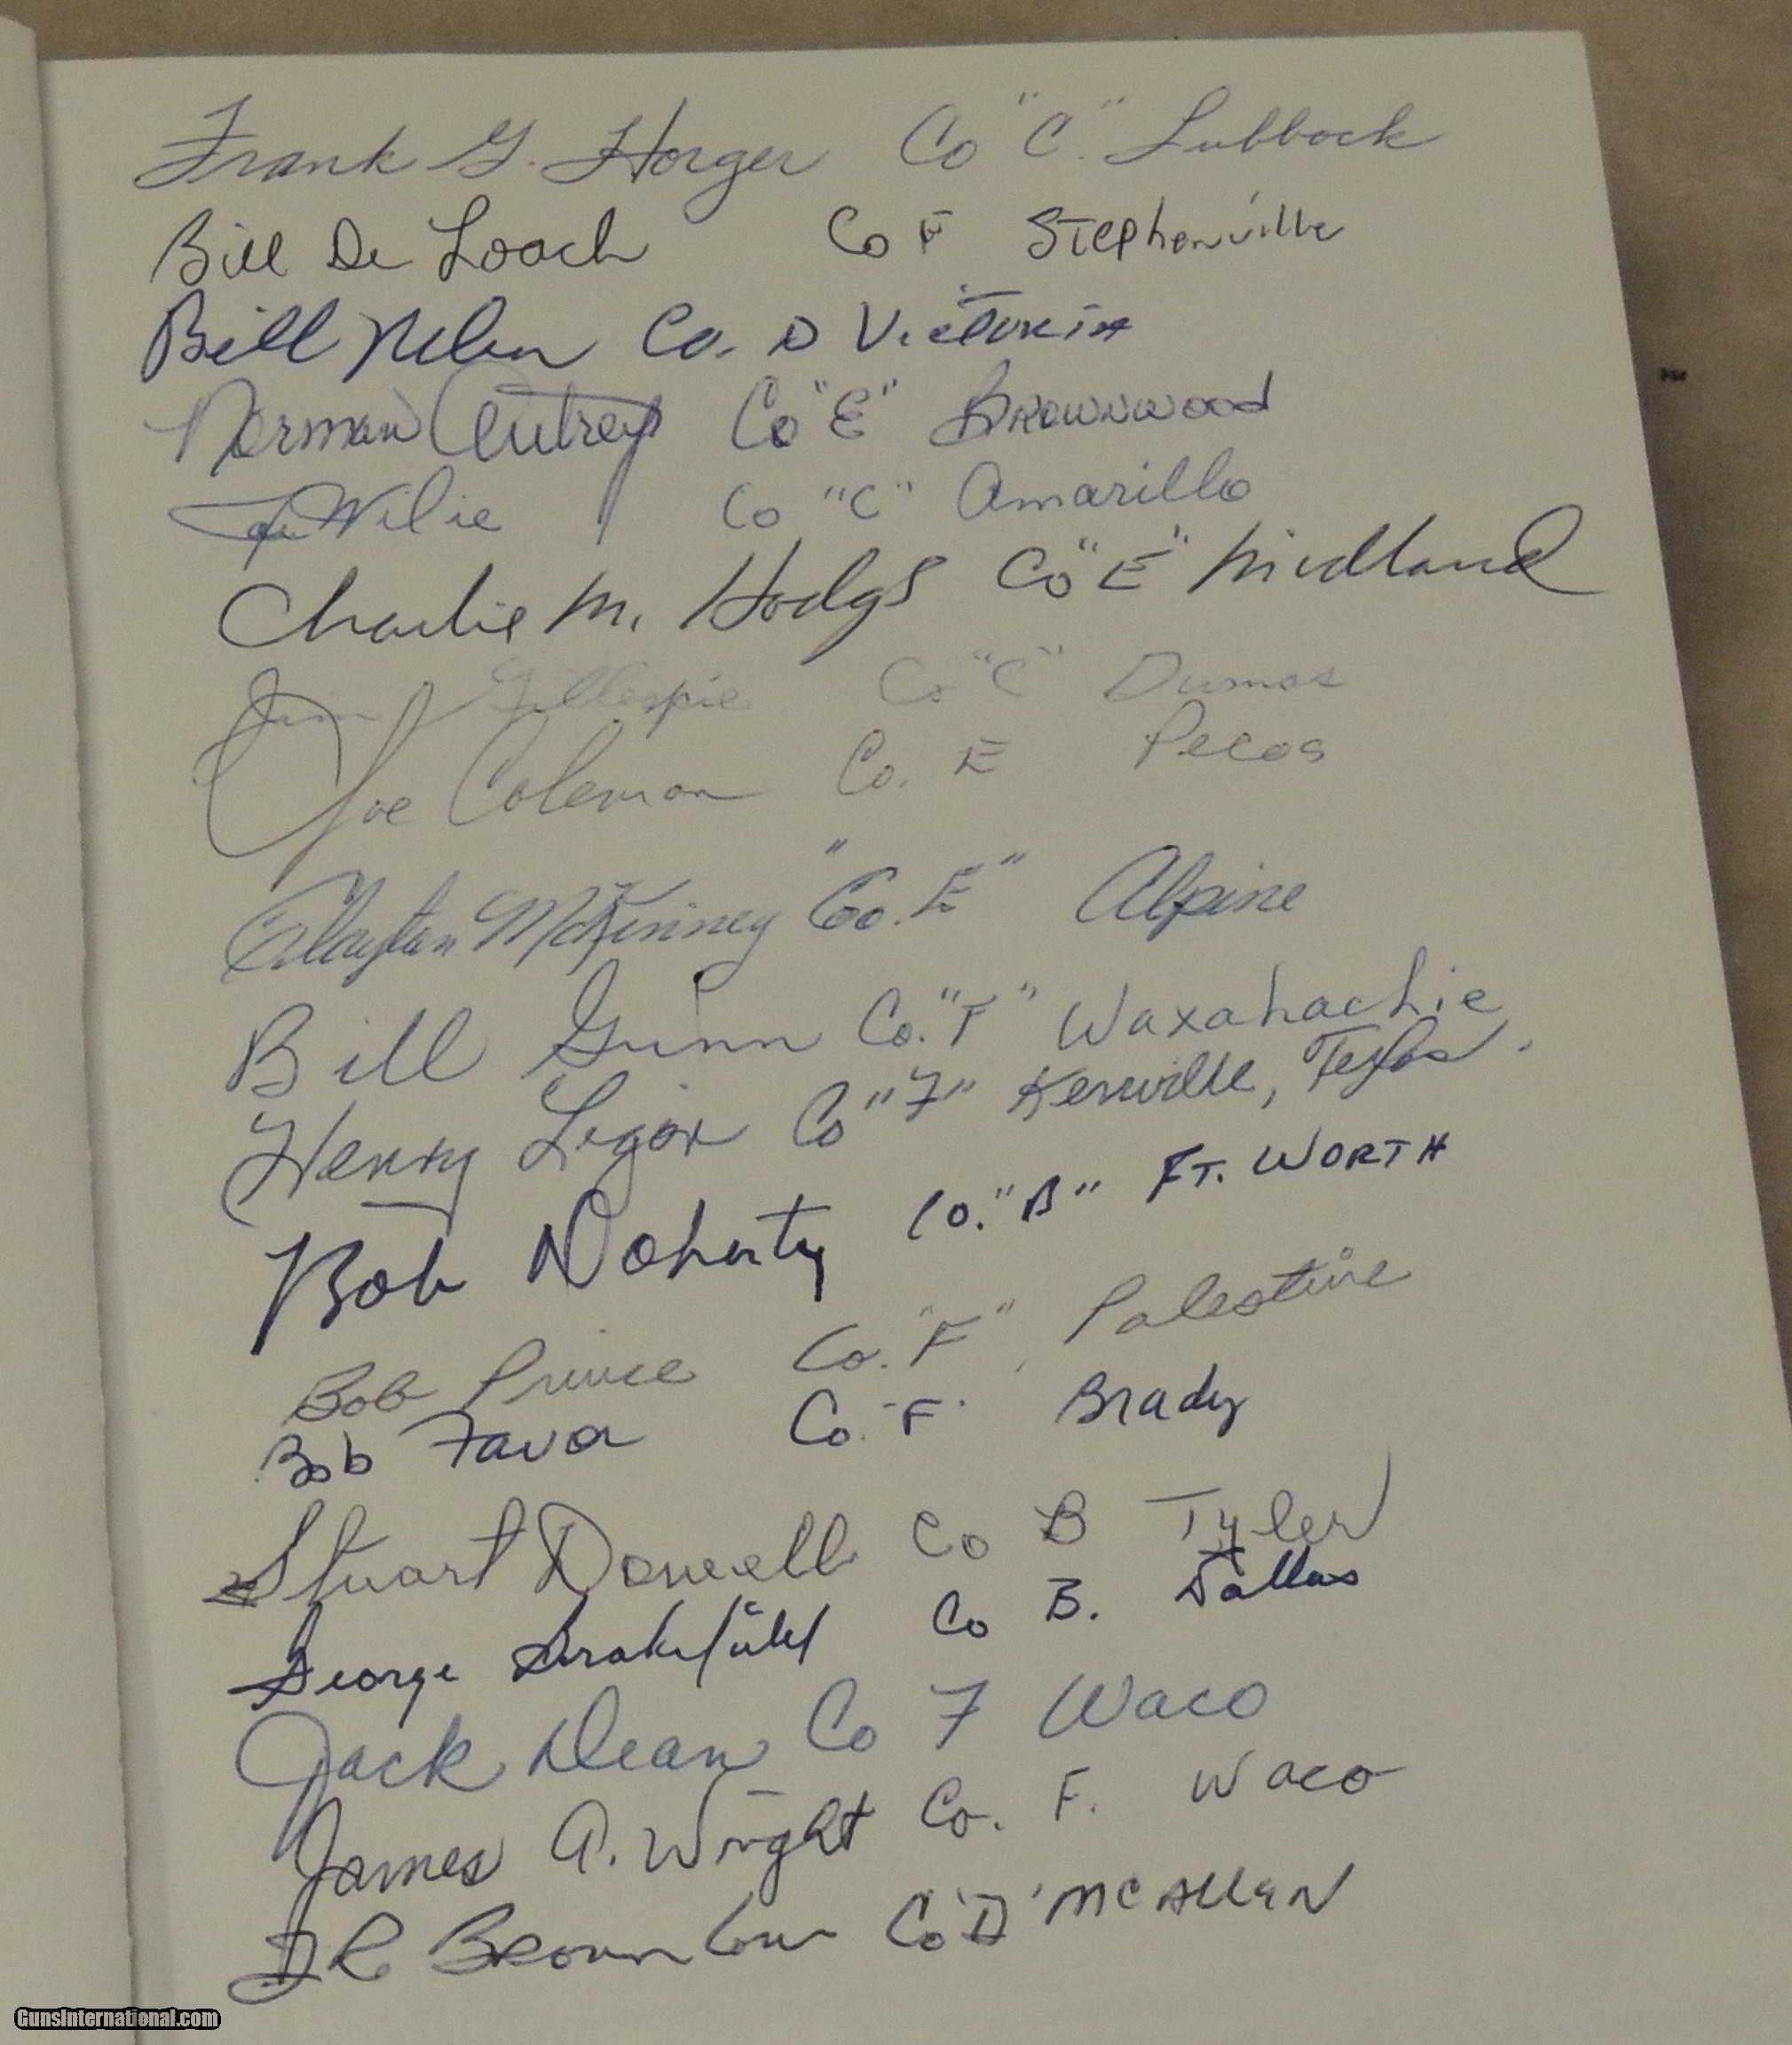 Frank G. Horger Co "C" Lubbock
Bill De Loach Co F Stephenville
Bill Co. D Victoria
Norman Autrey Co "E" Brownwood
Joe Wilie Co "C" Amarillo
Charlie M. Hodgs Co "E" Midland
Jim Gillespie Co "C" Dumas
Joe Coleman Co. E Pecos
Clayton McKinney "Co. E" Alpine
Bill Gunn Co. "F" Waxahachie
Henry Ligon Co "F" Kerrville, Texas.
Bob Doherty Co. "B" FT. WORTH
Bob Prince Co. "F", Palestine
Bob Favor Co. "F" Brady
Stuart Dowell Co B Tyler
George Brakefield Co B. Dallas
Jack Dean Co F Waco
James A. Wright Co. F. Waco
Brown Co "D" McAllen
GunsInternational.com